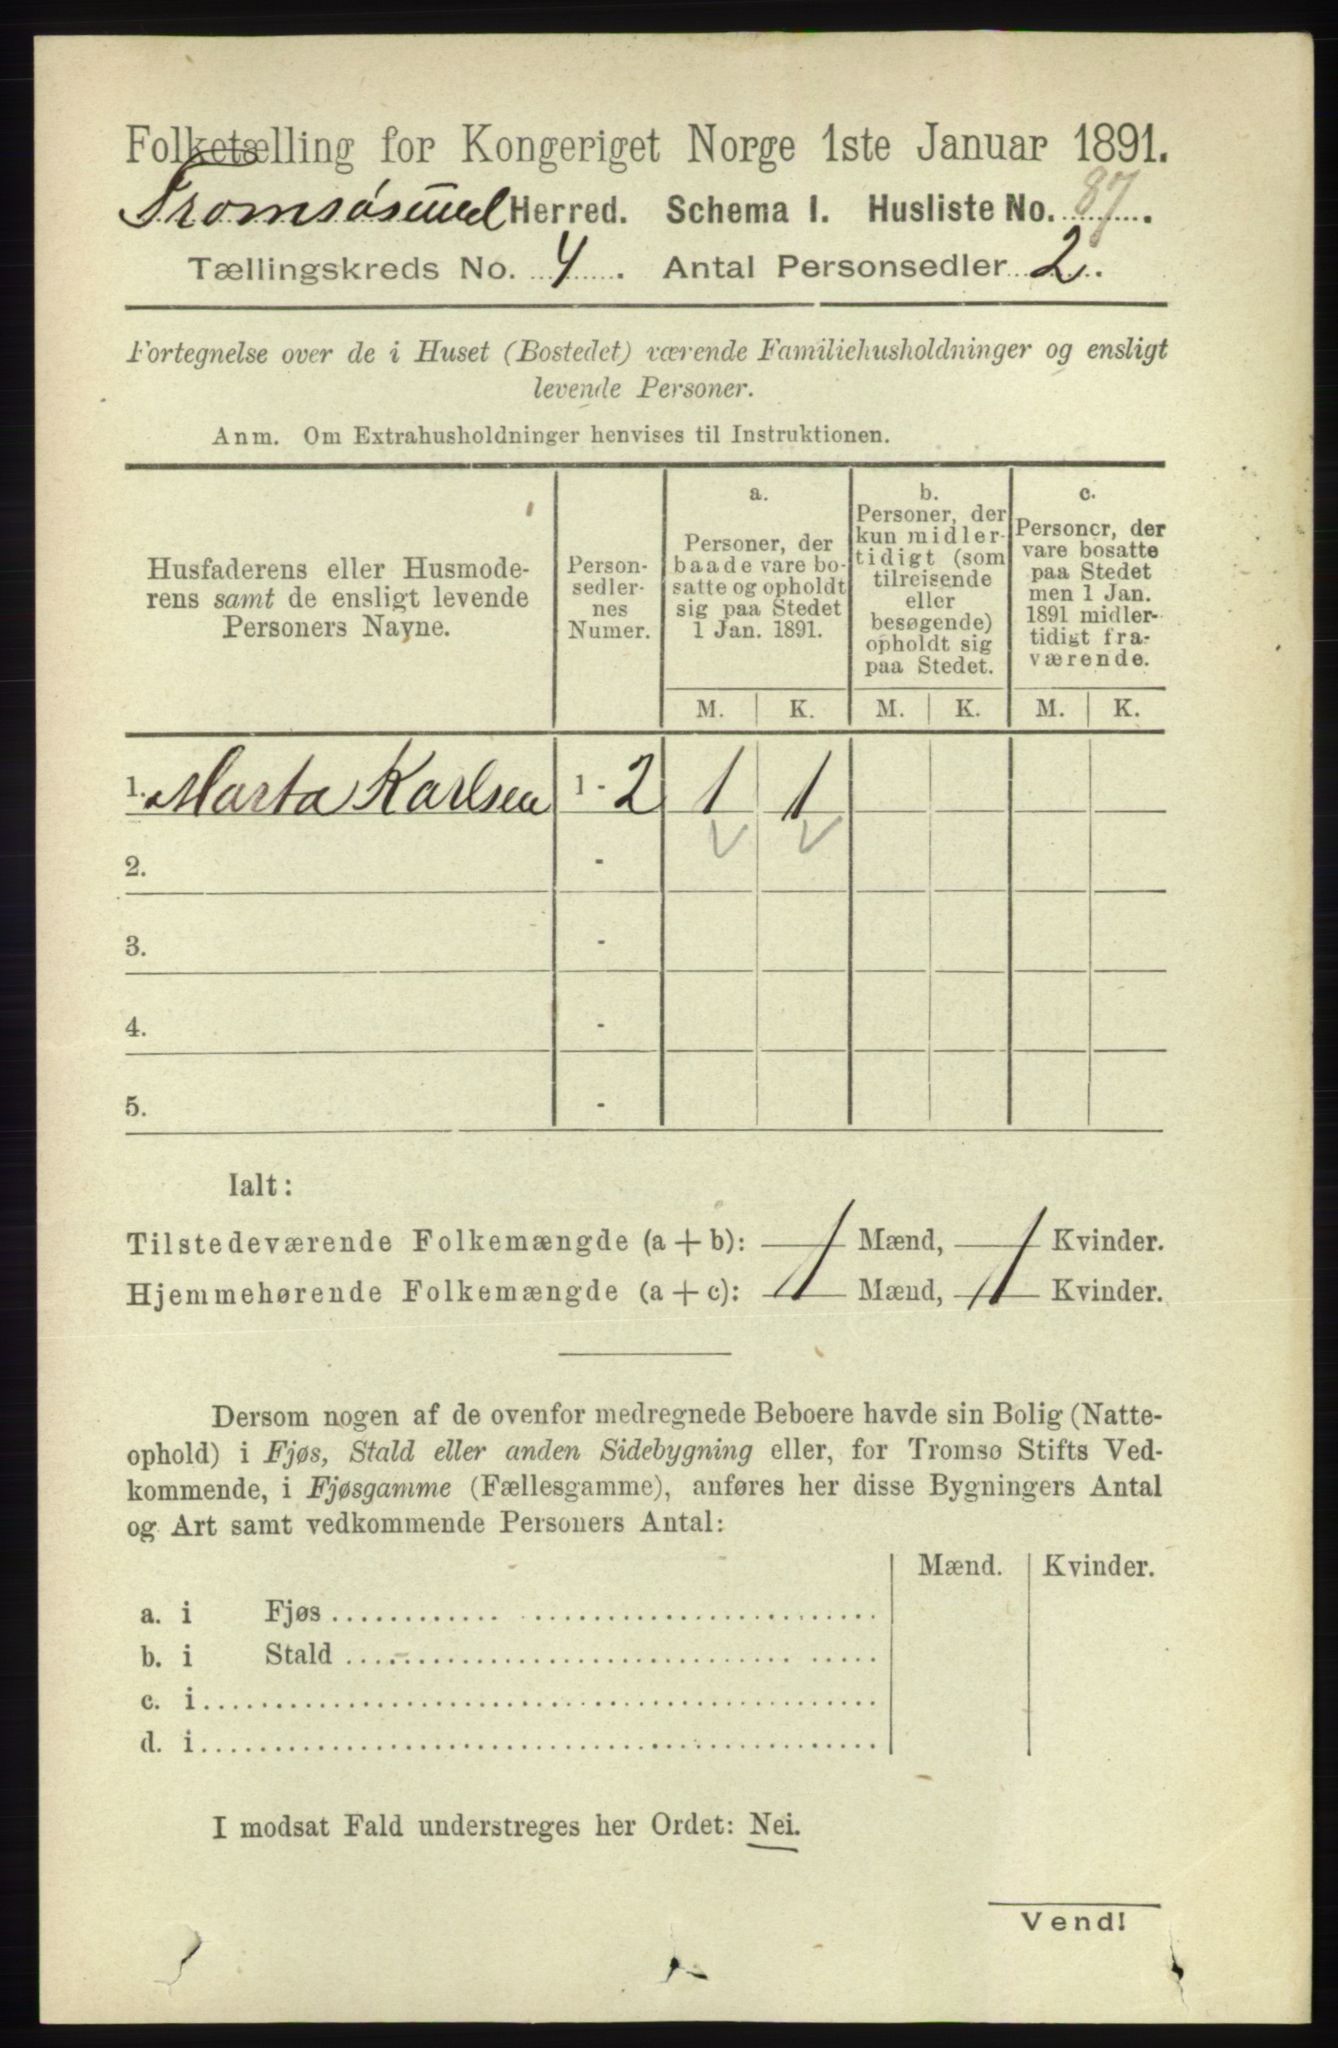 Folketælling for Kongeriget Norge 1ste Januar 1891.
Tromsøsund Herred. Schema I. Husliste No. 87.
Tællingskreds No. 4. Antal Personsedler 2.
Fortegnelse over de i Huset (Bostedet) værende Familiehusholdninger og ensligt
levende Personer.
Anm. Om Extrahusholdninger henvises til Instruktionen.
Husfaderens eller Husmode-
rens samt de ensligt levende
Personers Navne.
Person-
sedler-
nes
Numer.
a.
Personer, der
baade vare bo-
satte og opholdt
sig paa Stedet
1 Jan. 1891.
b.
Personer, der
kun midler-
tidigt (som
tilreisende
eller
besøgende)
opholdt sig
paa Stedet.
c.
Personer, der
vare bosatte
paa Stedet
men 1 Jan.
1891 midler-
tidigt fra-
værende.
M. K. M. K. M. K.
1. Marta Karlsen 1 - 2 1 1
2. -
3. -
4. -
5. -
Ialt:
Tilstedeværende Folkemængde (a + b): 1 Mænd, 1 Kvinder.
Hjemmehørende Folkemængde (a + c): 1 Mænd, 1 Kvinder.
Dersom nogen af de ovenfor medregnede Beboere havde sin Bolig (Natte-
ophold) i Fjøs, Stald eller anden Sidebygning eller, for Tromsø Stifts Ved-
kommende, i Fjøsgamme (Fællesgamme), anføres her disse Bygningers Antal
og Art samt vedkommende Personers Antal:
Mænd. Kvinder.
a. i Fjøs
b. i Stald
c. i
d. i
I modsat Fald understreges her Ordet: Nei.
Vend!